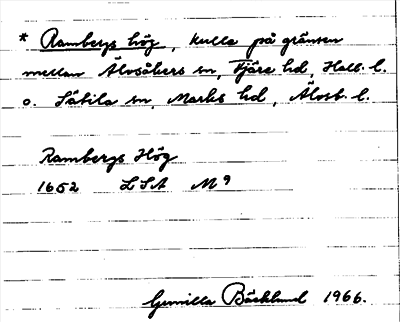 * Rambergs hög, kulle på gränsen
mellan Älvsåkers sn, Fjäre hd, Hall. l.
o. Sätila sn, Marks hd, Älvsb. l.
Rambergs Hög
1652 LSA M 9
Gunilla Bäcklund 1966.